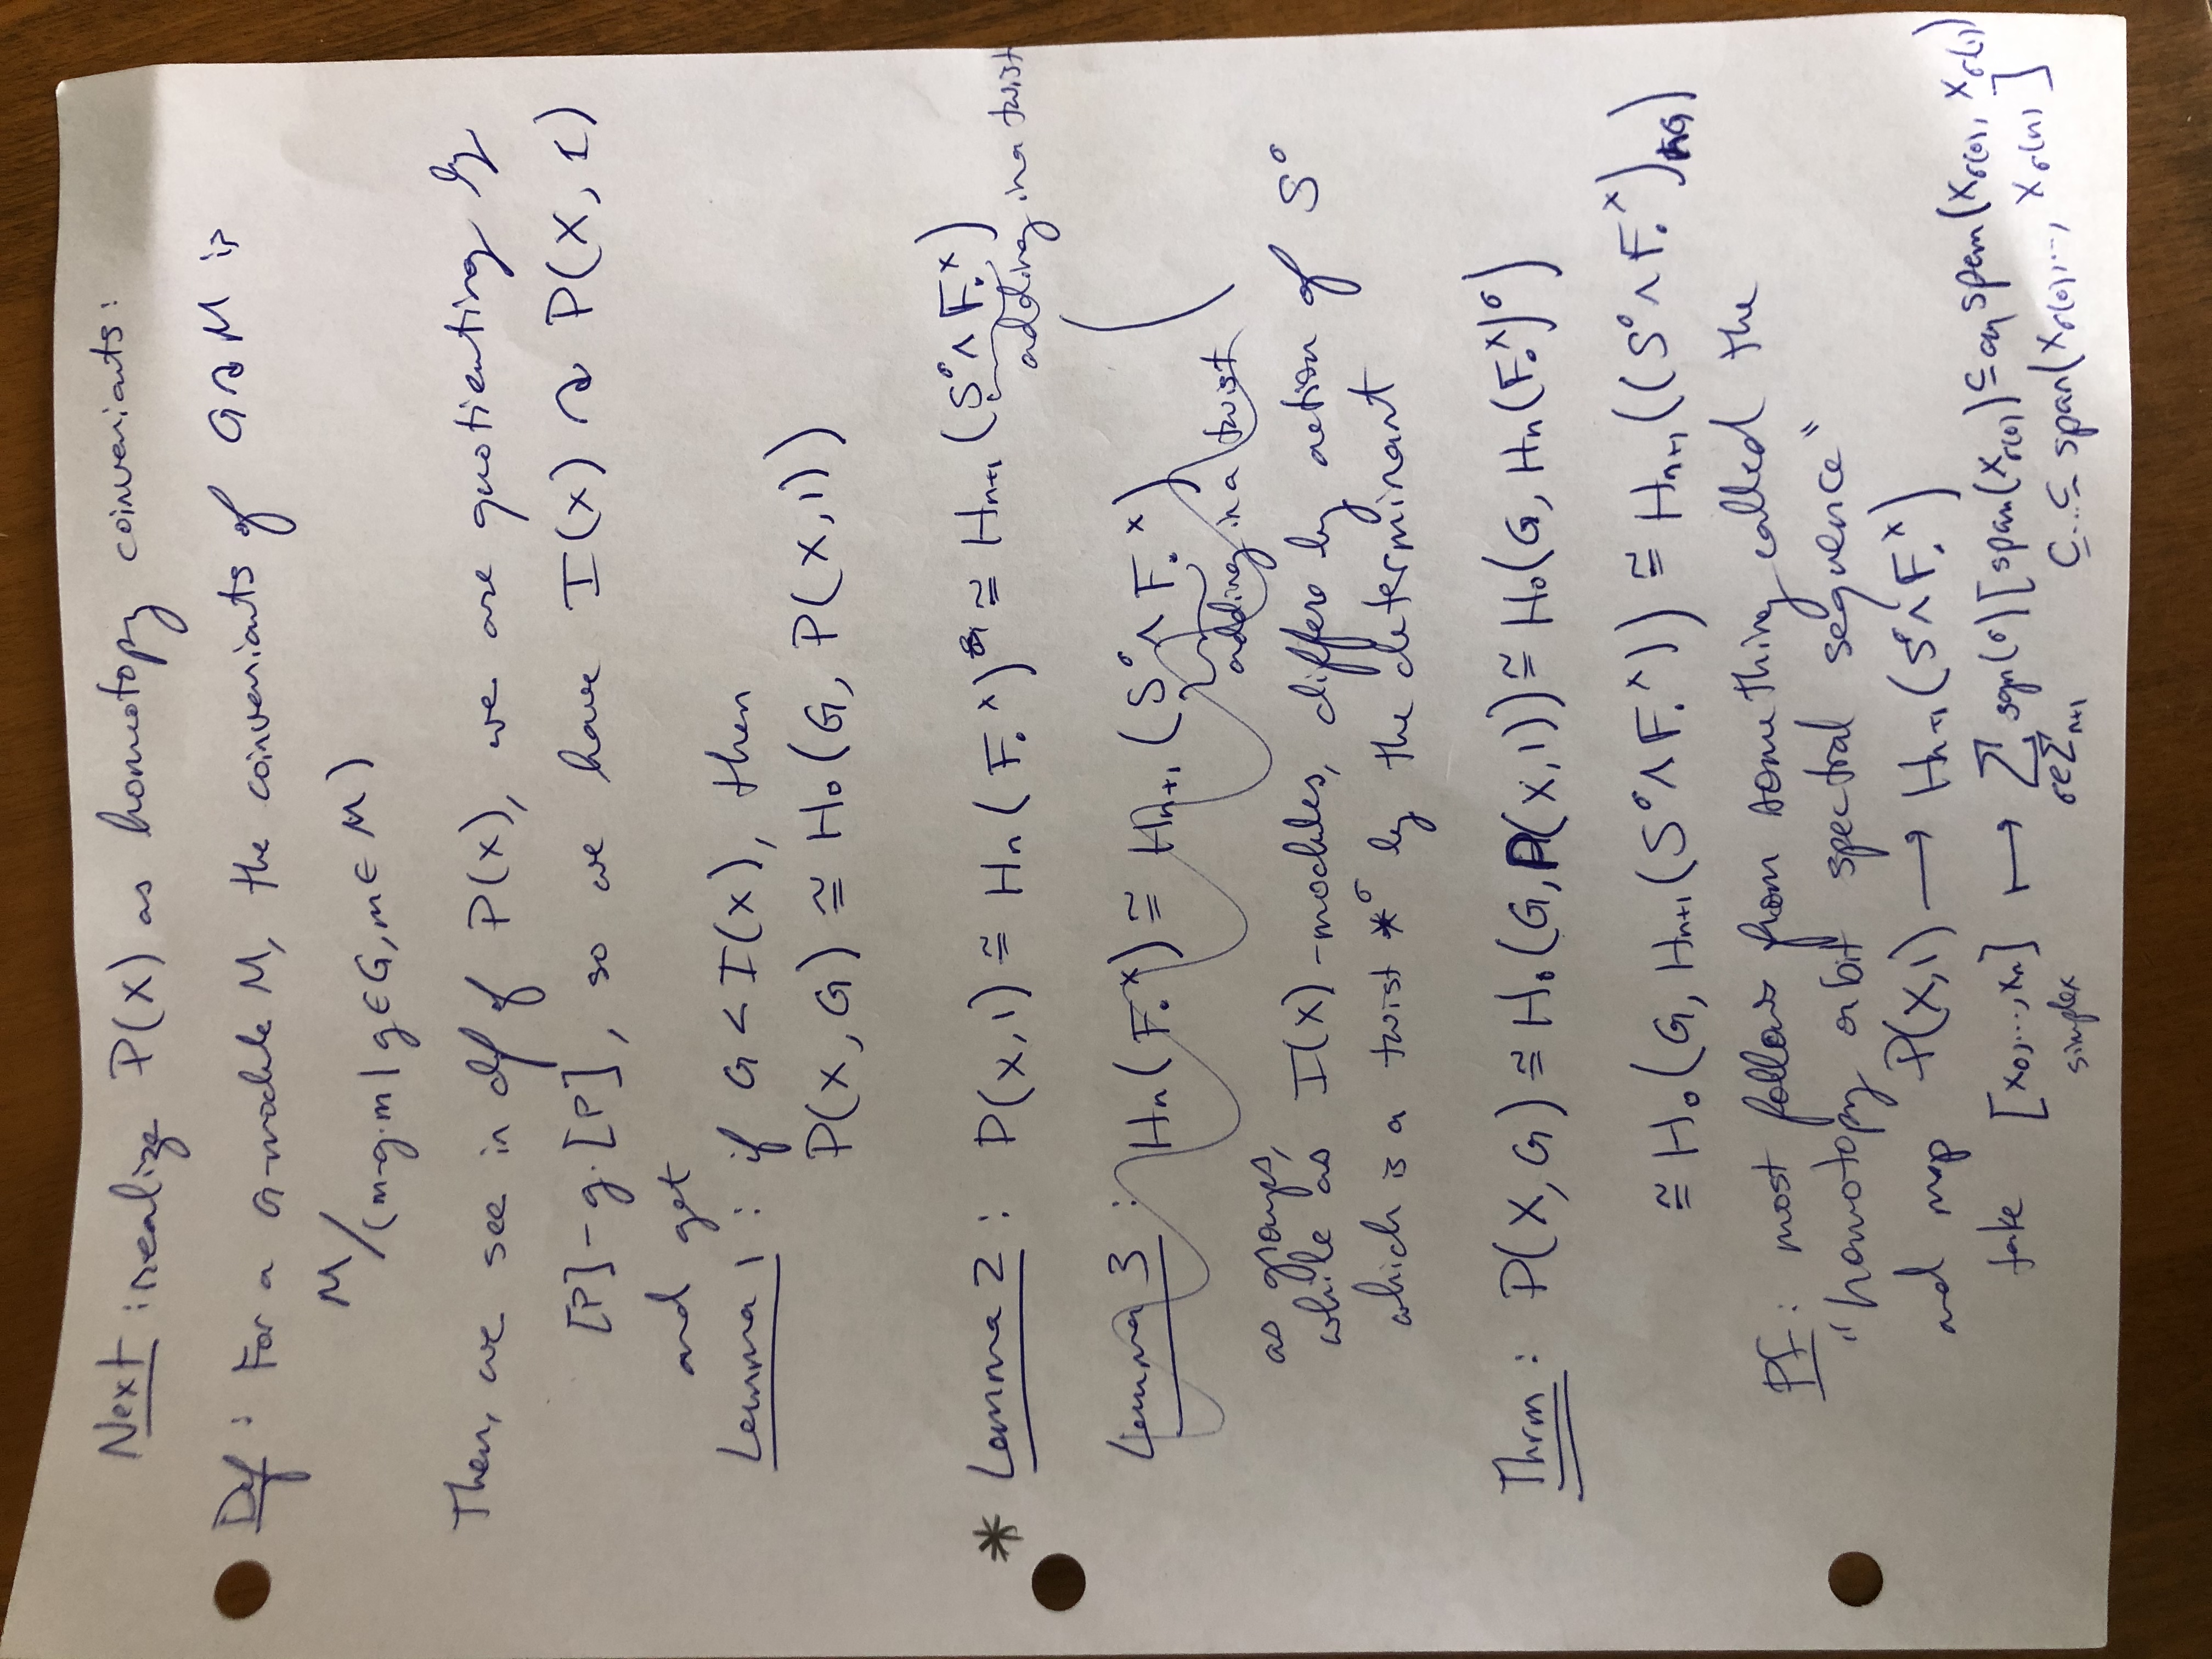 Next: realize P(X) as homotopy coinvariants:
Def: For a G-module M, the coinvariants of G↷M is
M/(m-g·m | g∈G, m∈M)
Then, we see in df of P(X), we are quotienting by
[P]-g·[P], so we have I(X) ↷ P(X, 1)
and get
Lemma 1: if G < I(X), then
P(X, G) ≅ H₀(G, P(X,1))
* Lemma 2: P(X,1) ≅ Hₙ(F.ˣ)^σ ≅ Hₙ₊₁(S^σ∧F.ˣ)
adding in a twist
Lemma 3: Hₙ(F.ˣ) ≅ Hₙ₊₁(S^σ∧F.ˣ)
adding in a twist
as groups,
while as I(X)-modules, differ by action of S^σ
which is a twist *^σ by the determinant
Thrm: P(X, G) ≅ H₀(G, P(X,1)) ≅ H₀(G, Hₙ(F.ˣ)^σ)
≅ H₀(G, Hₙ₊₁(S^σ∧F.ˣ)) ≅ Hₙ₊₁((S^σ∧F.ˣ)_hG)
Pf: most follows from something called the
"homotopy orbit spectral sequence"
and map P(X,1) → Hₙ₊₁(S^σ∧F.ˣ)
take [x₀,...,xₙ] ↦ Σ_{σ∈Σₙ₊₁} sgn(σ)[span(x_σ(0)) ⊆ span(x_σ(0), x_σ(1))
simplex ⊆...⊆ span(x_σ(0),..., x_σ(n))]